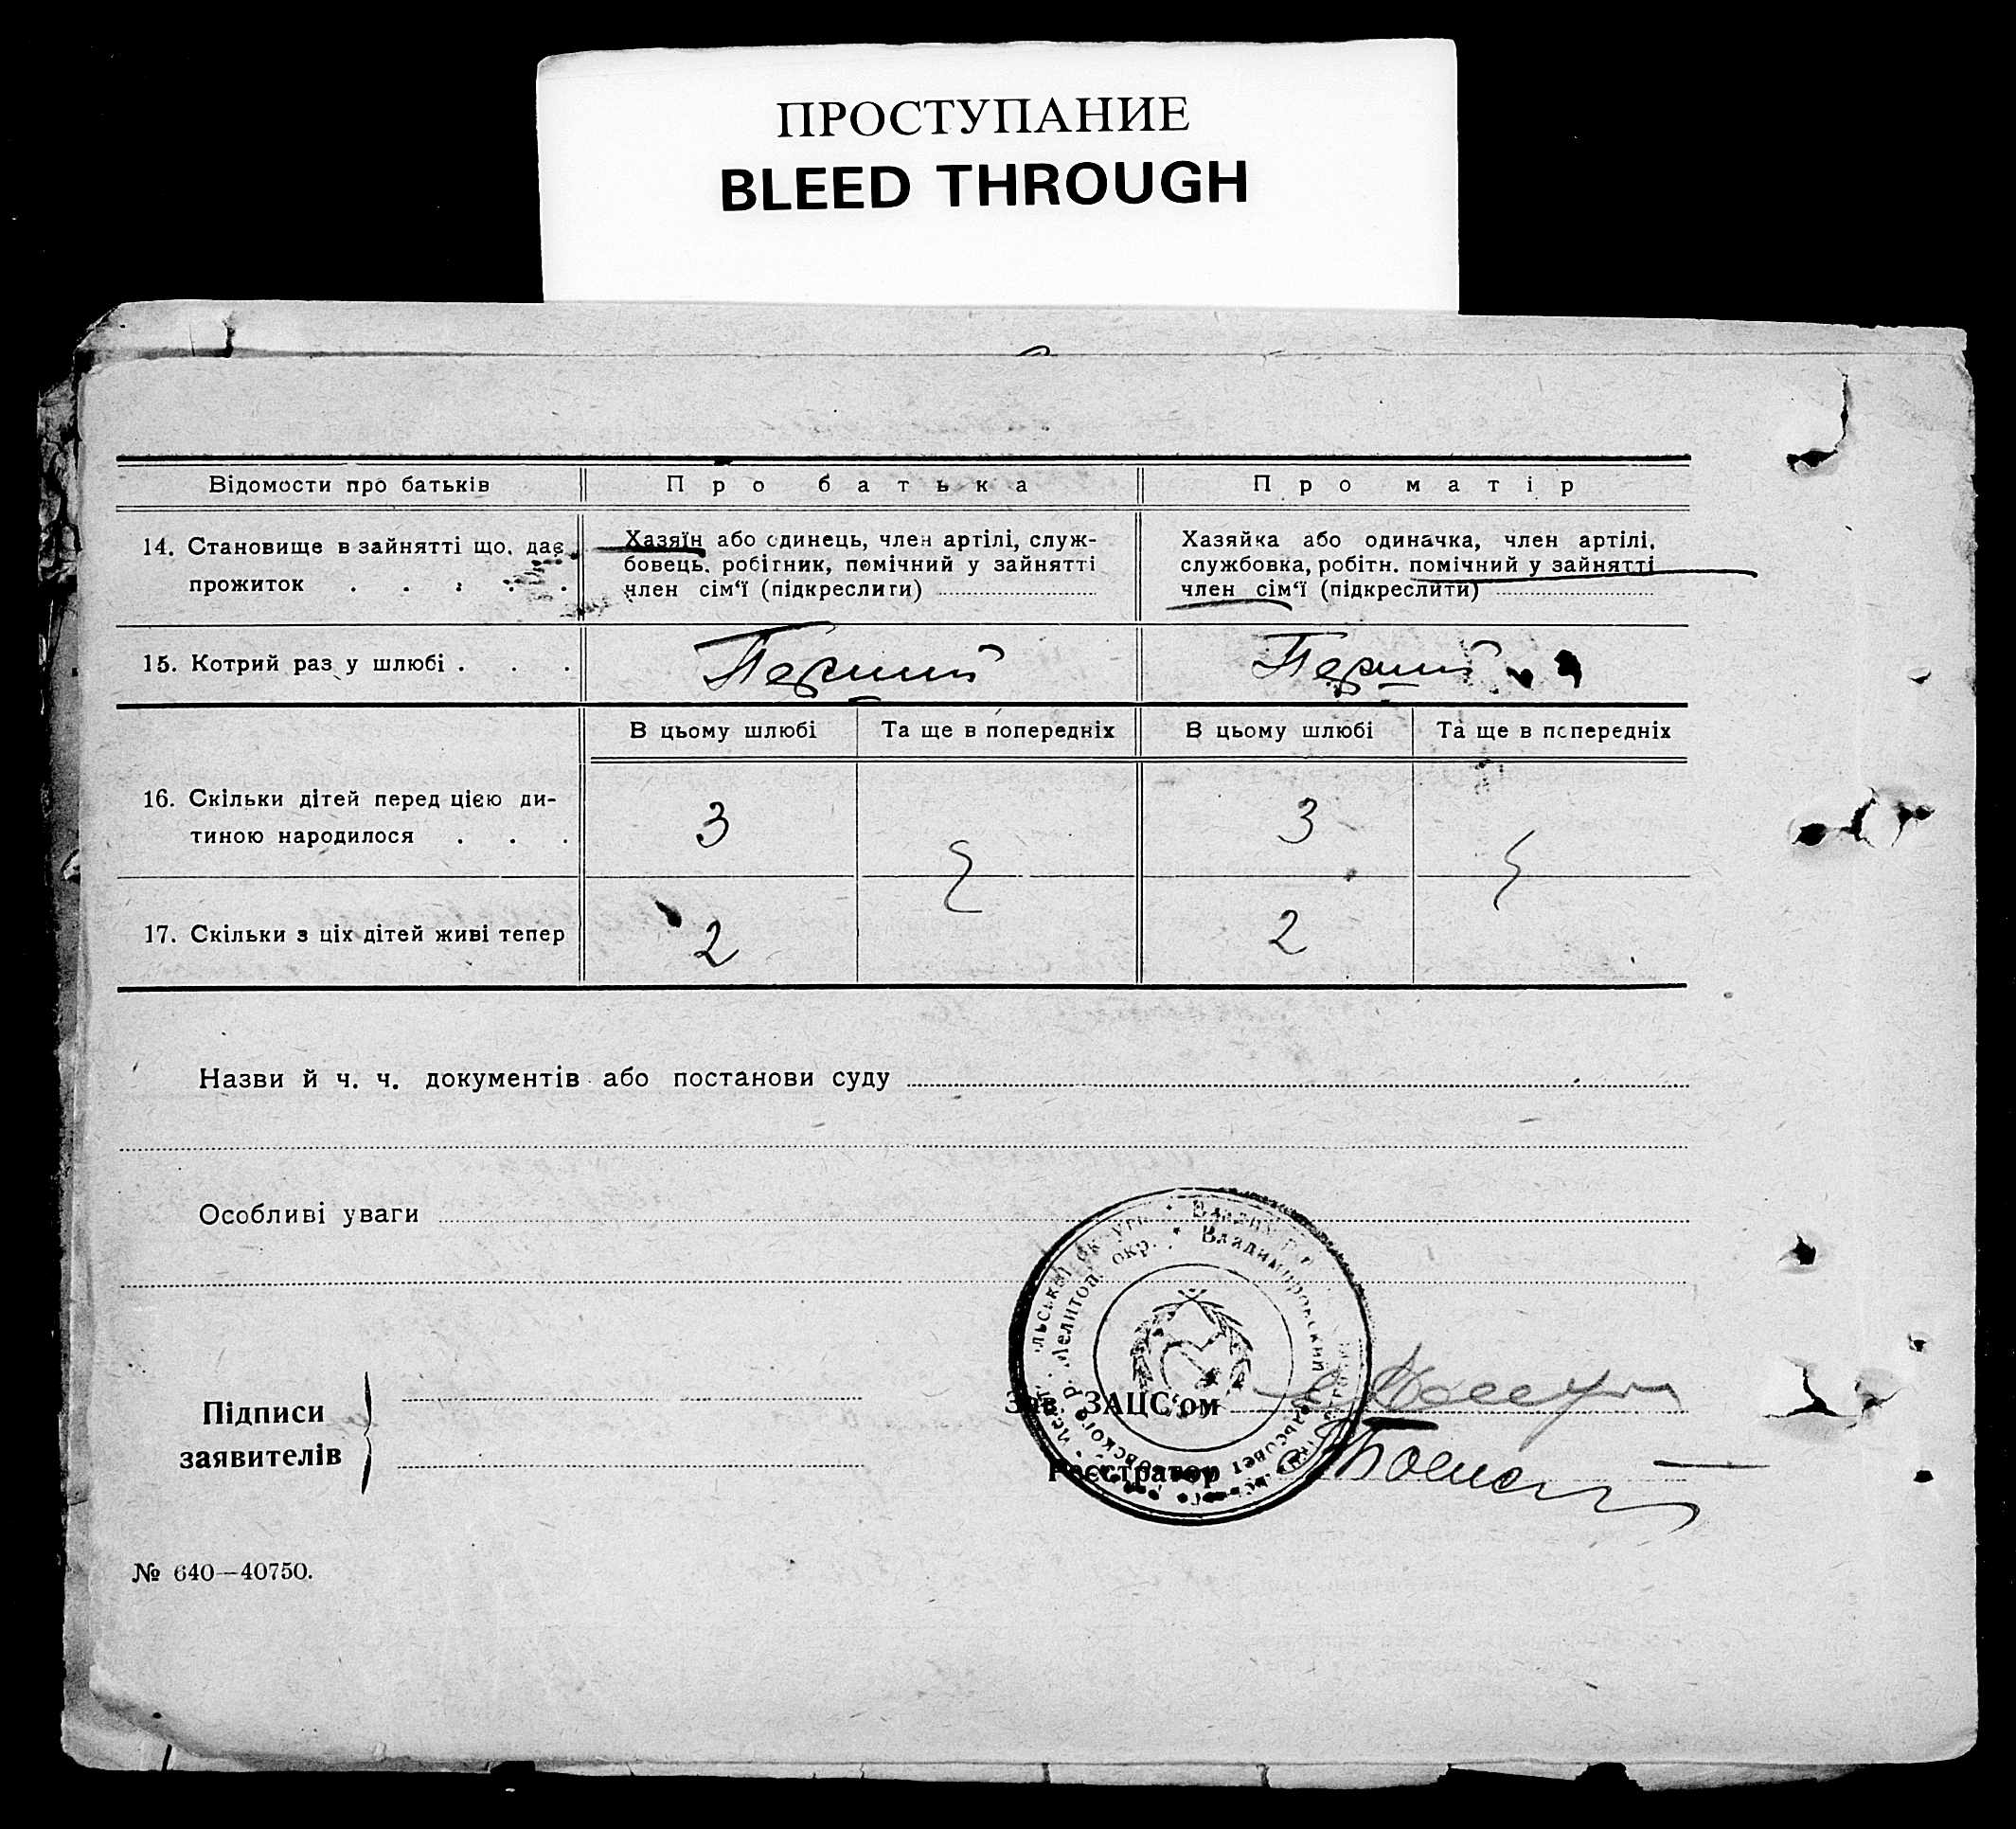 ПРОСТУПАНИЕ
BLEED THROUGH
Відомости про батьків
Про батька
Про матір
14. Становище в зайнятті що, дає
прожиток . . . . .
Хазяїн або одинець, член артілі, служ-
бовець, робітник, помічний у зайнятті
член сім‘ї (підкреслити)
Хазяйка або одиначка, член артілі,
службовка, робітн. помічний у зайнятті
член сім‘ї (підкреслити)
15. Котрий раз у шлюбі . . .
Перший
Перший
В цьому шлюбі
Та ще в попередніх
В цьому шлюбі
Та ще в попередніх
16. Скільки дітей перед цією ди-
тиною народилося . . .
3
3
17. Скільки з ціх дітей живі тепер
2
2
Назви й ч. ч. документів або постанови суду
Особливі уваги
окр. * Владимировский
сельсовет
Мелитоп.
Підписи
заявителів
Зав. ЗАЦС‘ом
Реєстратор
№ 640—40750.